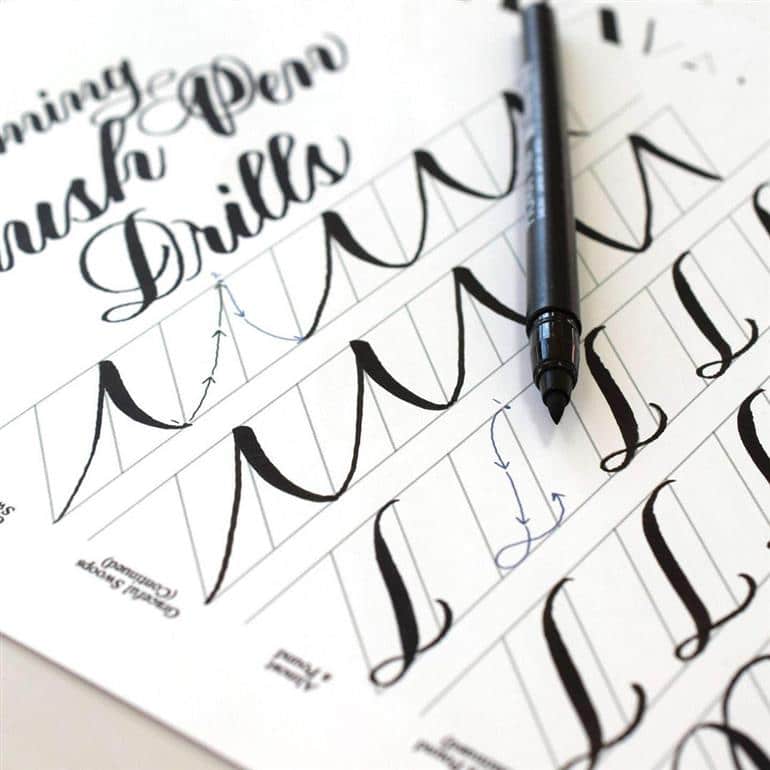 ming
rush Pen
Drills
Graceful Swoops
(Continued)
Almost
a Pound
a Pound
(Continued)